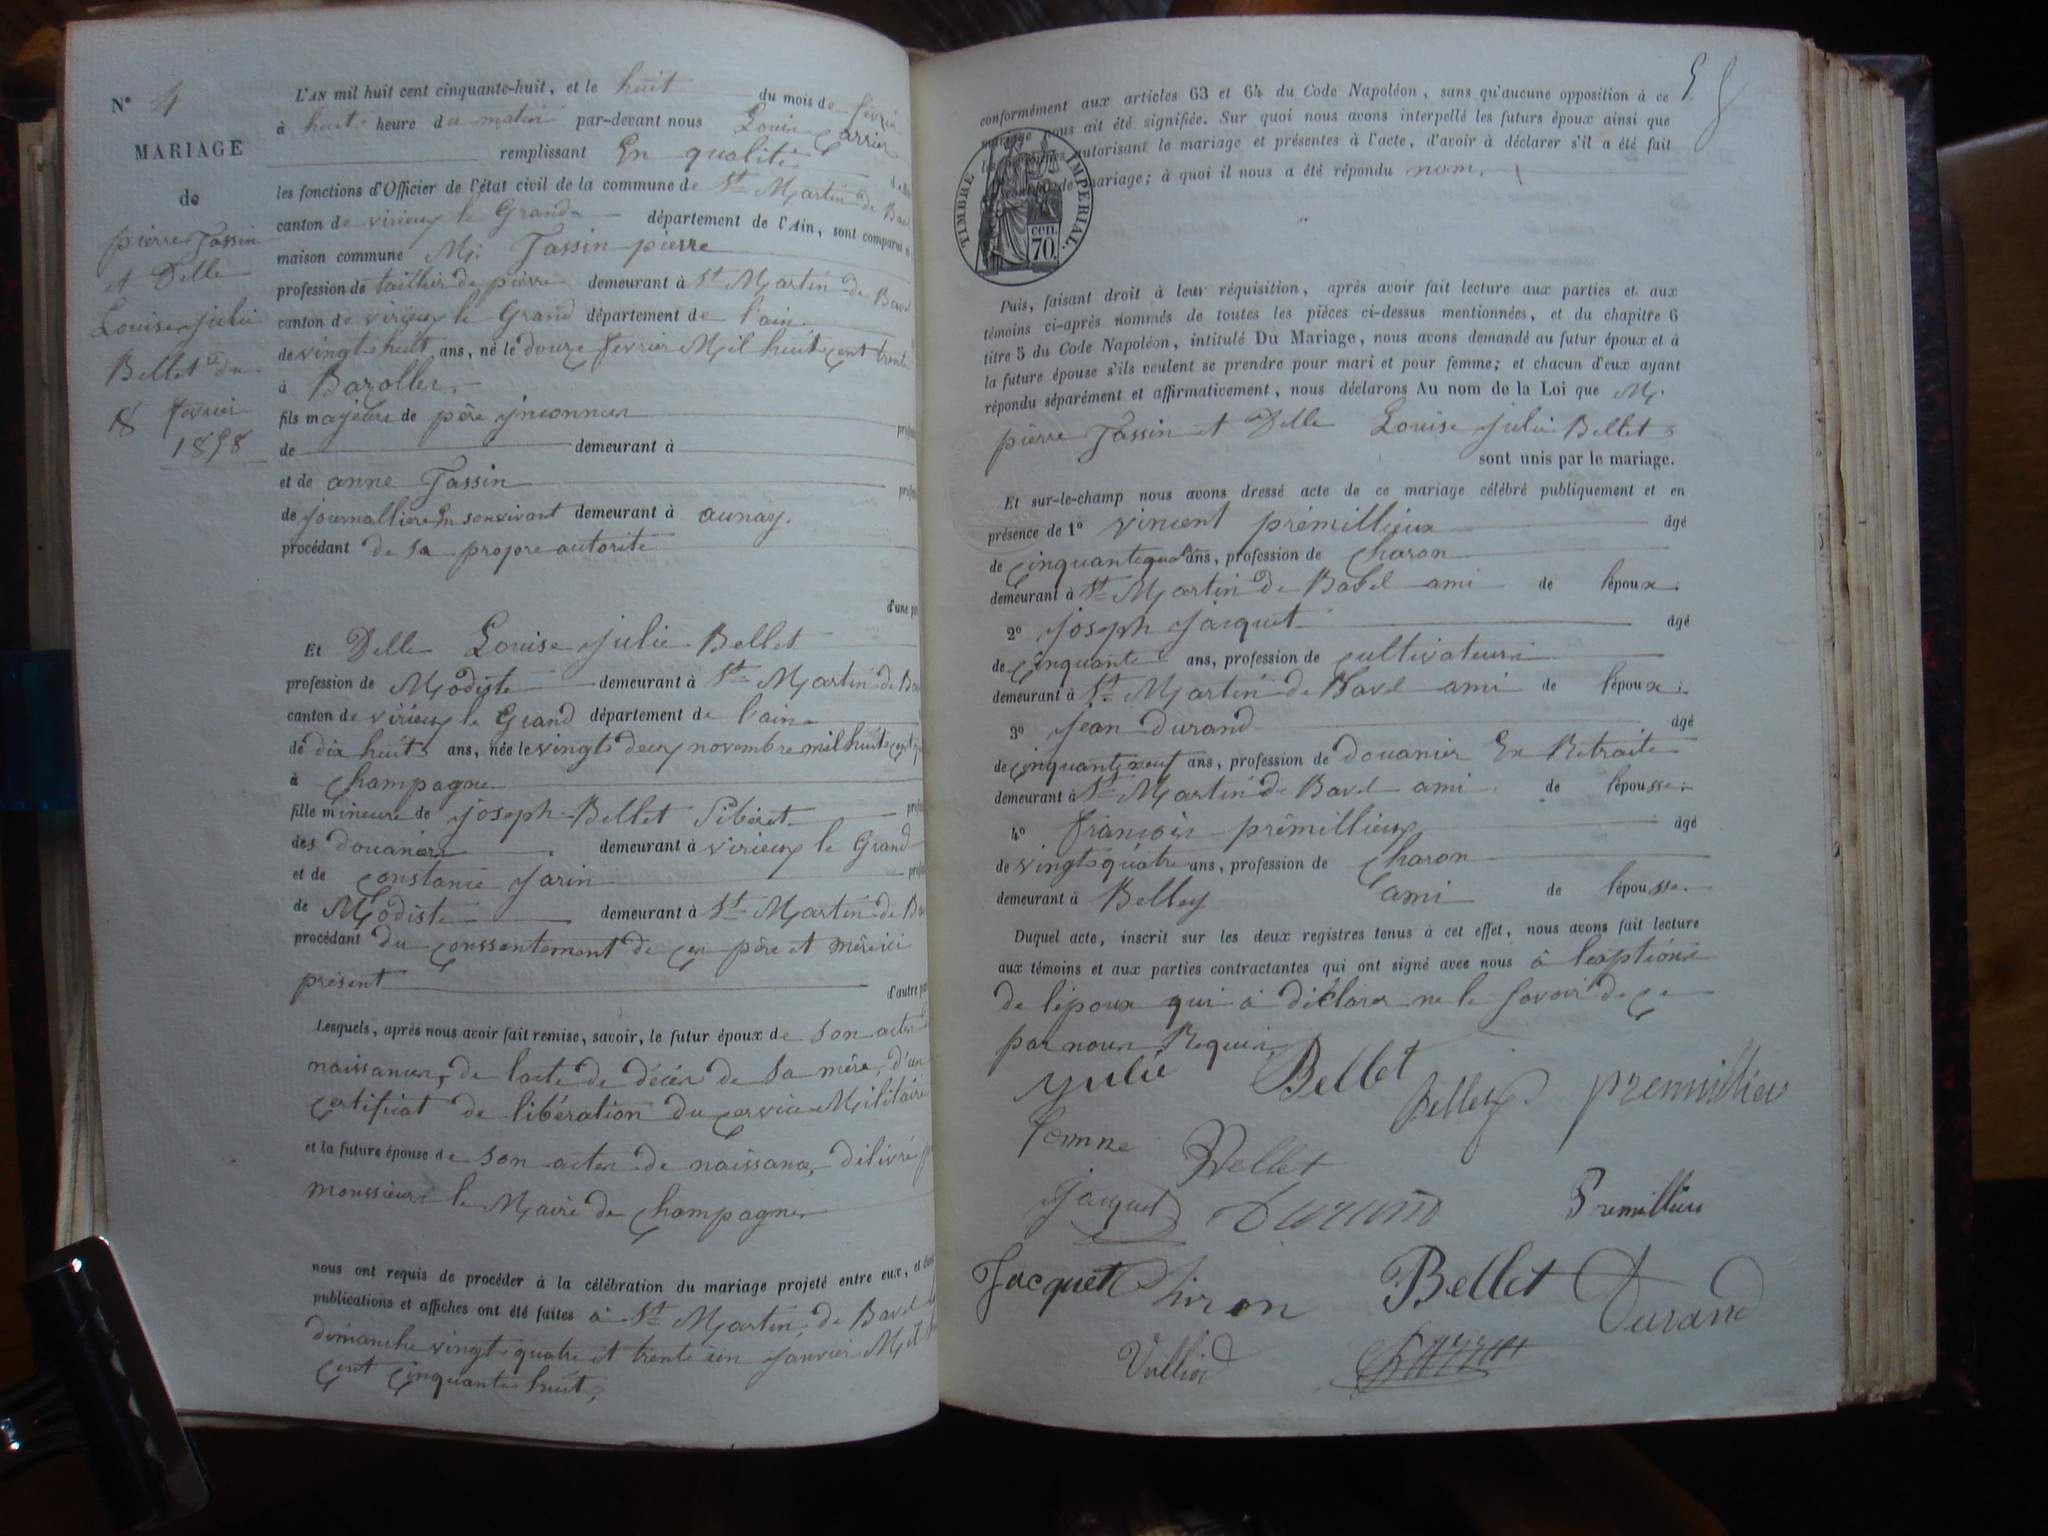 N° 4
MARIAGE
de
pierre Tassin
et Delle
Louise julie
Bellet du
8 fevrier
1858
L'AN mil huit cent cinquante-huit, et le huit du mois de févri
à huit heure du matin par-devant nous Louis Carrier
remplissant En qualité
les fonctions d'Officier de l'état civil de la commune de St Martin de Bav
canton de virieux le Grand département de l'Ain, sont comparus
maison commune Mr Tassin pierre
profession de taillier de pièrre demeurant à St Martin de Bavel
canton de virieux le Grand département de l'ain
de vingt huit ans, né le douze fevrier Mil huit cent trente
à
fils majeur de père jnconnus
de demeurant à
et de anne Tassin
de journalliere En sonvivant demeurant à aunay.
procédant de sa propre autorité
d'une pa
Et Delle Louise julie Bellet
profession de Modiste demeurant à St Martin de Ba
canton de virieux le Grand département de l'ain
de dix huit ans, née le vingt deux novembre mil huit cent
à Champagne
fille mineure de joseph Bellet Sibéret
des douanes demeurant à virieux le Grand
et de Constance jarin
de Modiste demeurant à St Martin de Ba
procédant du Conssentement de ces père et mère ici
présent
d'autre pa
Lesquels, après nous avoir fait remise, savoir, le futur époux de son acte
naissances, de lacte de décès de sa mère, d'un
certificat de libération du cervice Militaire
et la future épouse de son acte de naissance, délivré p
monssieur le Maire de Champagne
nous ont requis de procéder à la célébration du mariage projeté entre eux, et dont
publications et affiches ont été faites à St Martin de Bavel
dimanche vingt quatre et trente un janvier Mil
Cent Cinquante huit,
58
conformément aux articles 63 et 64 du Code Napoléon, sans qu'aucune opposition à ce
mariage nous ait été signifiée. Sur quoi nous avons interpellé les futurs époux ainsi que
les personnes autorisant le mariage et présentes à l'acte, d'avoir à déclarer s'il a été fait
de mariage; à quoi il nous a été répondu nom.
TIMBRE IMPÉRIAL.
cen.
70.
Puis, faisant droit à leur réquisition, après avoir fait lecture aux parties et aux
témoins ci-après nommés de toutes les pièces ci-dessus mentionnées, et du chapitre 6
titre 5 du Code Napoléon, intitulé Du Mariage, nous avons demandé au futur époux et à
la future épouse s'ils veulent se prendre pour mari et pour femme; et chacun d'eux ayant
répondu séparément et affirmativement, nous déclarons Au nom de la Loi que M.
pierre Tassin et Delle Louise julie Bellet
sont unis par le mariage.
Et sur-le-champ nous avons dressé acte de ce mariage célébré publiquement et en
présence de 1° vincent prémillieux âgé
de ans, profession de Charon
demeurant à St Martin de Bavel ami de l'époux.
2° joseph jacquet âgé
de Cinquante ans, profession de Cultivateur
demeurant à St Martin de Bavel ami de l'époux;
3° jean durand âgé
de cinquante neuf ans, profession de douanier En Retraite
demeurant à St Martin de Bavel ami de l'épousse;
4° francois prémillieux âgé
de vingt quatre ans, profession de Charon
demeurant à Belley ami de l'épousse.
Duquel acte, inscrit sur les deux registres tenus à cet effet, nous avons fait lecture
aux témoins et aux parties contractantes qui ont signé avec nous à
de lépoux qui à déclarer ne le Savoir de ce
par nous Requis
julie Bellet
premillieu
femme Bellet
jacquet Durand Premillieu
Jacquet Bellet Durand